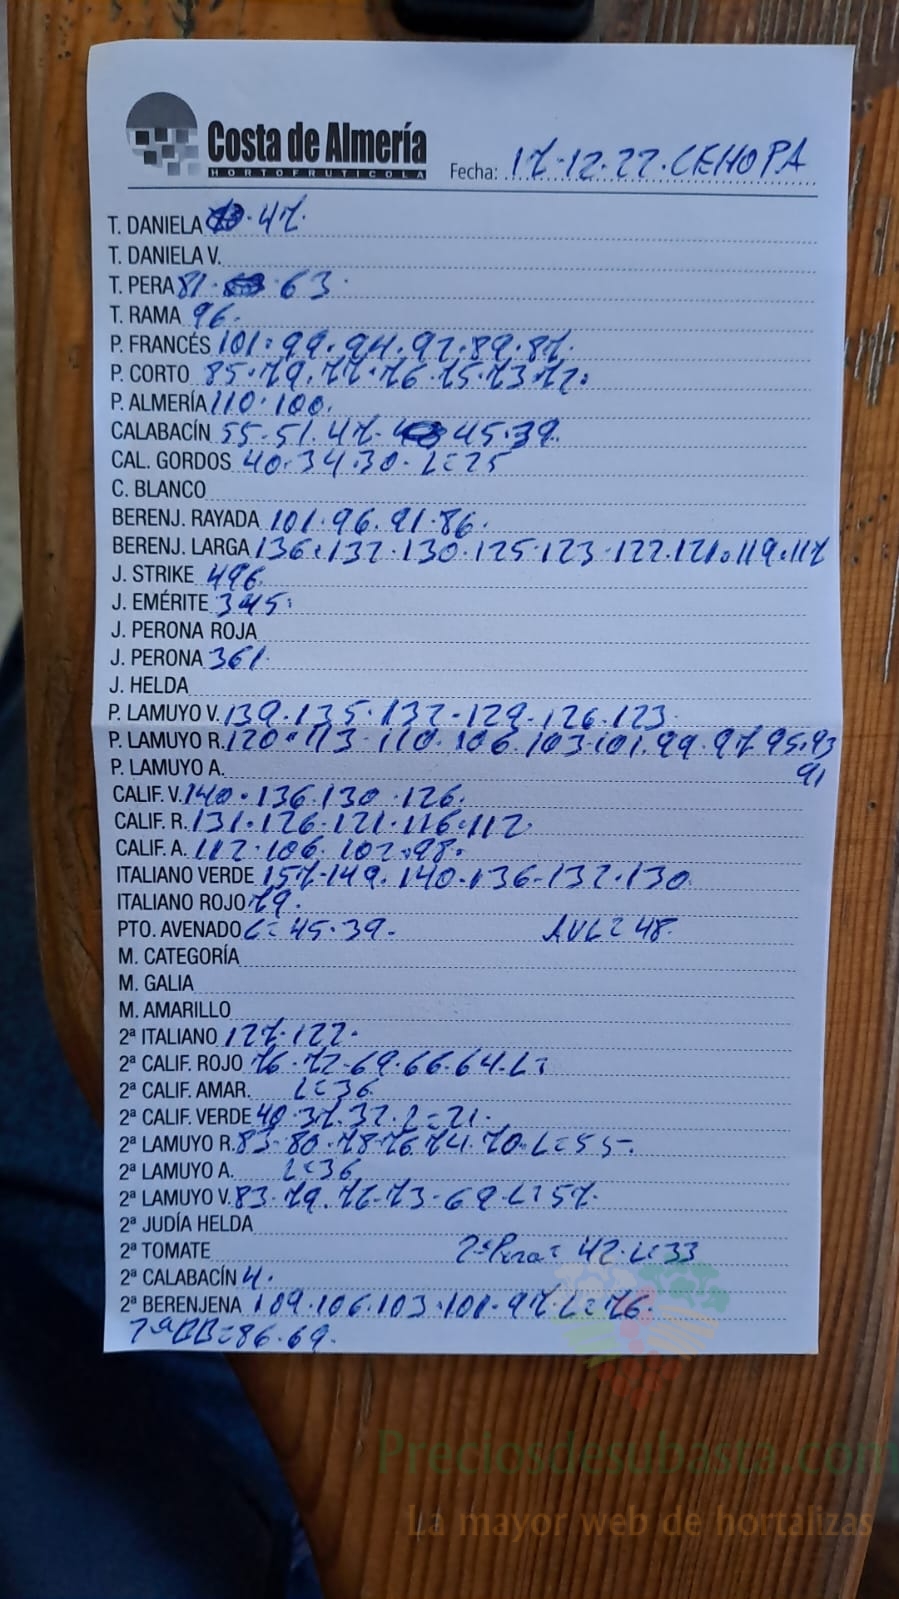 Costa de Almería
HORTOFRUTICOLA
Fecha: 17-12-22. CEHOPA
T. DANIELA . 47.
T. DANIELA V.
T. PERA 81. 63.
T. RAMA 96.
P. FRANCÉS 101. 99. 94. 92. 89. 87.
P. CORTO 85. 79. 77. 76. 75. 73. 72.
P. ALMERÍA 110. 100.
CALABACÍN 55-51. 47- 45. 39.
CAL. GORDOS 40. 34. 30. L=25
C. BLANCO
BERENJ. RAYADA 101. 96. 91. 86.
BERENJ. LARGA 136. 132. 130. 125. 123. 122. 121. 119. 117
J. STRIKE 496.
J. EMÉRITE 345.
J. PERONA ROJA
J. PERONA 361.
J. HELDA
P. LAMUYO V. 139. 135. 132- 129. 126. 123.
P. LAMUYO R. 120. 113- 110. 106. 103. 101. 99. 97. 95. 93
91
P. LAMUYO A.
CALIF. V. 140. 136. 130. 126.
CALIF. R. 131. 126. 121. 116. 112.
CALIF. A. 112. 106. 102. 98.
ITALIANO VERDE 157-149. 140. 136- 132. 130.
ITALIANO ROJO 79.
PTO. AVENADO L= 45. 39. AVL= 48.
M. CATEGORÍA
M. GALIA
M. AMARILLO
2ª ITALIANO 127. 122.
2ª CALIF. ROJO 76. 72-69. 66. 64. L=
2ª CALIF. AMAR. L=36
2ª CALIF. VERDE 40. 37. 32. L=21.
2ª LAMUYO R. 83- 80. 78. 76. 74. 70. L=55.
2ª LAMUYO A. L=36
2ª LAMUYO V. 83. 79. 76-73-69 L=57.
2ª JUDÍA HELDA
2ª TOMATE 2ª Pera= 42. L=33
2ª CALABACÍN 4.
2ª BERENJENA 109. 106. 103. 101. 97. L=76.
2ªBB=86. 69.
Preciosdesubasta.com
La mayor web de hortalizas